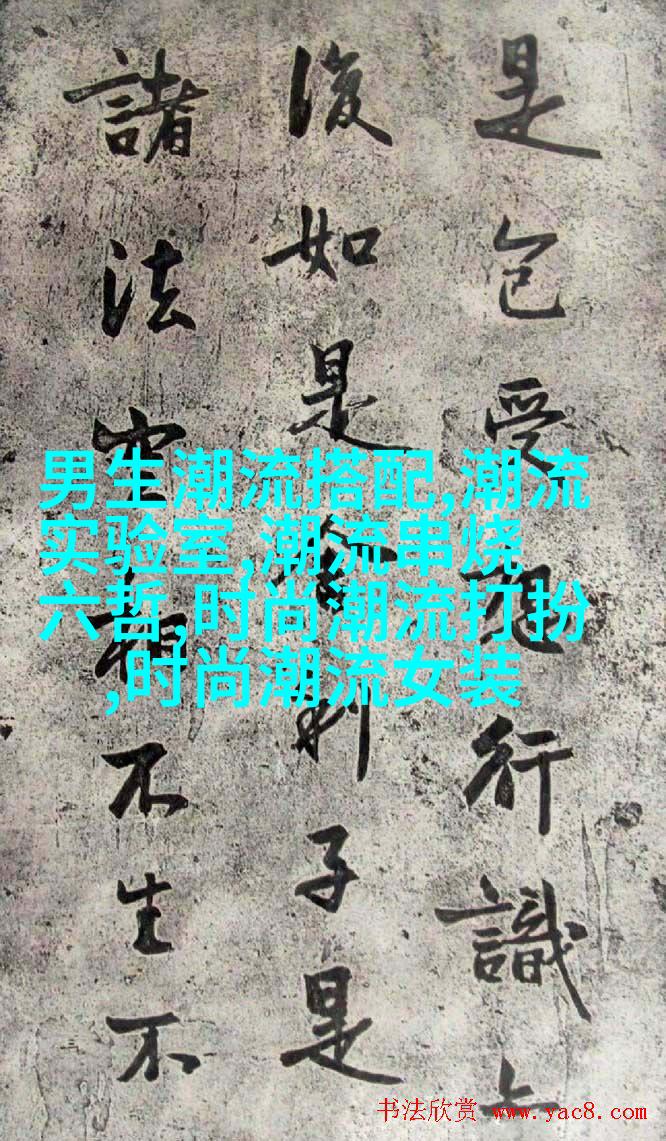 是色受想行識
復如是舍利子是
諸法空相不生不
男生潮流搭配,潮流
实验室,潮流串烧
六哲,时尚潮流打扮
,时尚潮流女装
书法欣赏 www.yac8.com